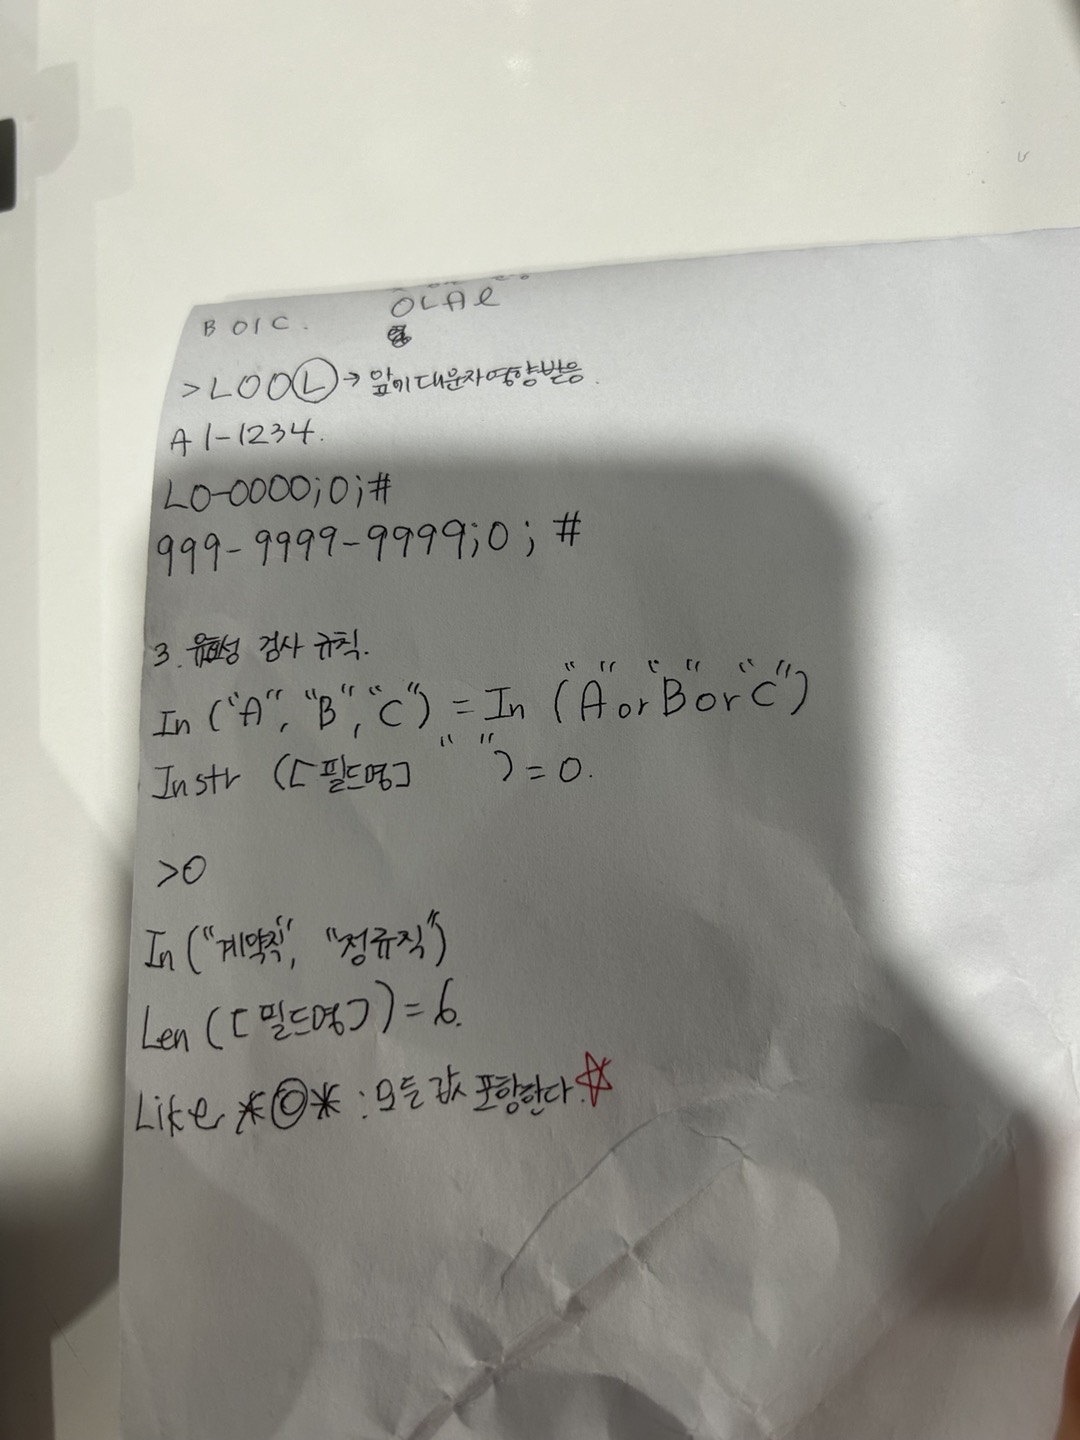 OLAl
B01C.
>L00L → 앞에 대문자 영향받음.
A1-1234.
L0-0000;0;#
999-9999-9999;0;#
3. 유효성 검사 규칙.
In ("A", "B", "C") = In ("A" or "B" or "C")
Instr ([필드명] " ") = 0.
>0
In ("계약직", "정규직")
Len ([필드명]) = 6.
Like *@*: 모든 값 포함한다.☆